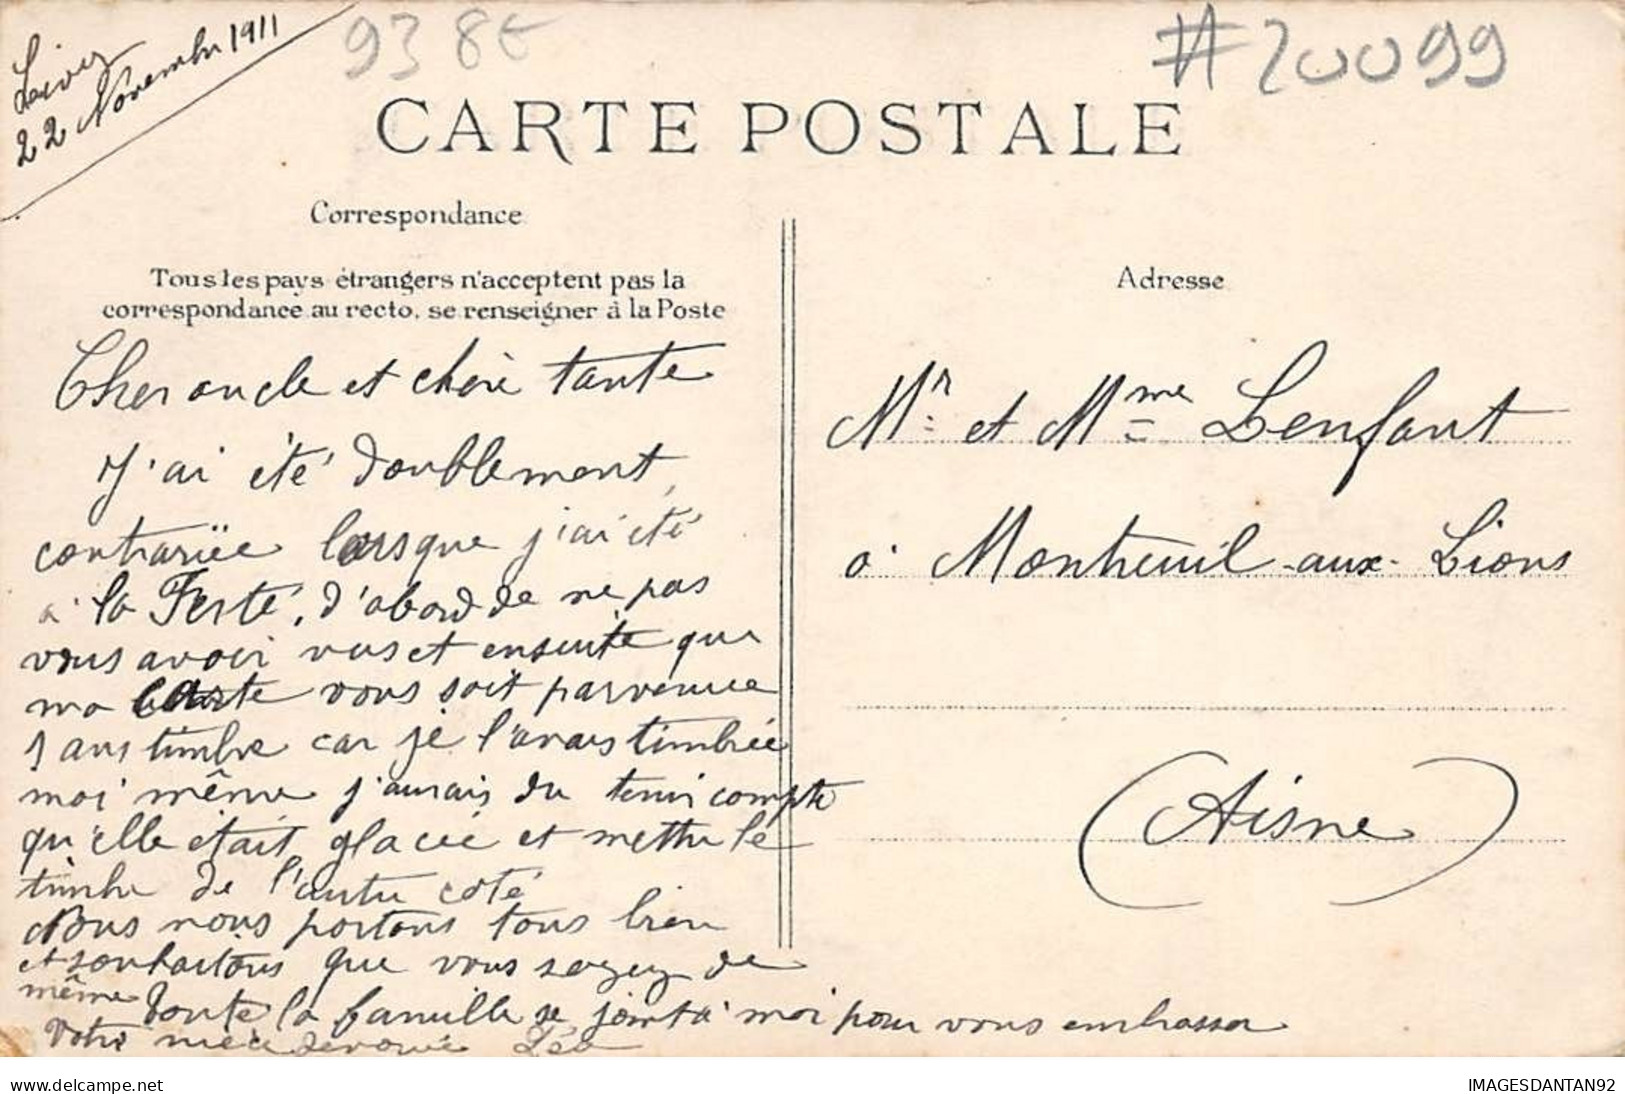 22 Novembre 1911
93 8E
#20099
CARTE POSTALE
Correspondance
Tous les pays étrangers n'acceptent pas la
correspondance au recto, se renseigner à la Poste
Adresse
Cher oncle et chère tante
J'ai été doublement,
contrariëe lorsque j'ai été
à la Ferté, d'abord de ne pas
vous avoir vus et ensuite que
ma carte vous soit parvenue
sans timbre car je l'avais timbrée
moi même j'aurais du tenir compte
qu'elle était glacée et mettre le
timbre de l'autre coté
Nous nous portons tous bien
et souhaitons que vous soyez de
même Toute la famille se joint à moi pour vous embrasser
Votre nièce dévouée Léa
Mr et Mme Lenfant
à Montreuil-aux-Lions
(Aisne)
IMAGESDANTAN92
www.delcampe.net